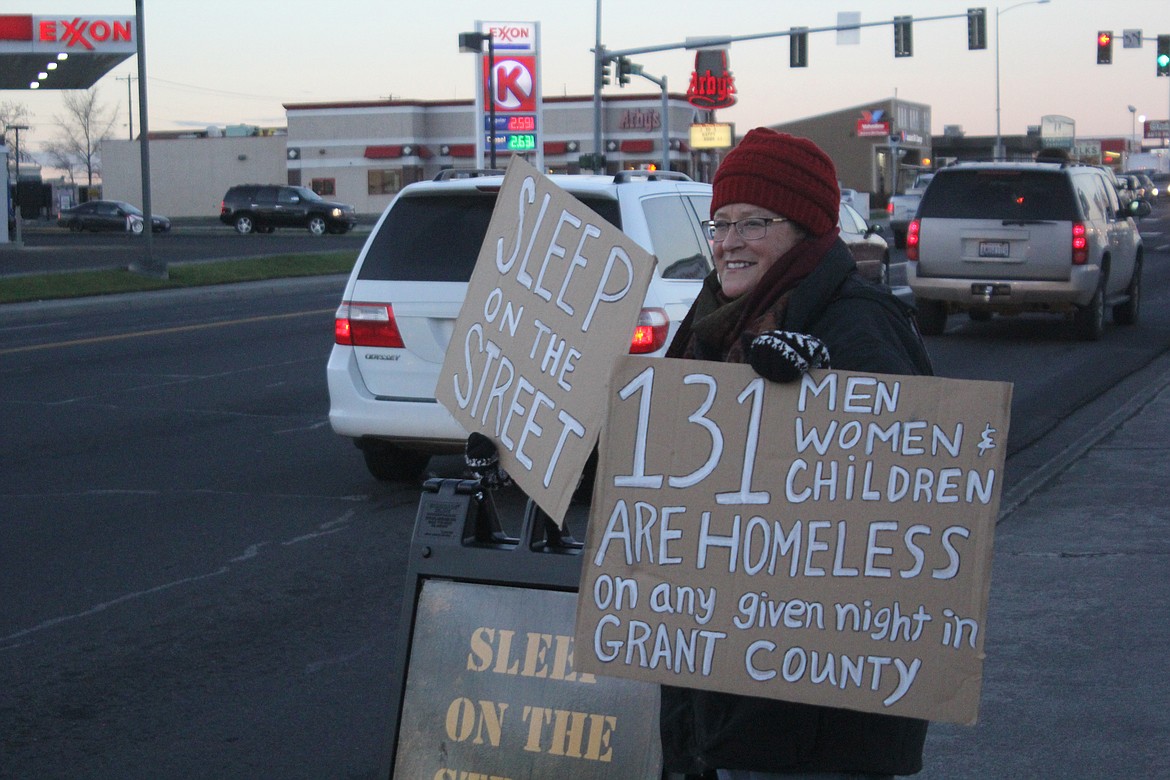 EXXON
EXXON
K
2.59
2.63
Arby's
Arby's
SLEEP
ON THE
STREET
131
MEN
WOMEN &
CHILDREN
ARE HOMELESS
on any given night in
GRANT COUNTY
ODYSSEY
SLEEP
ON THE